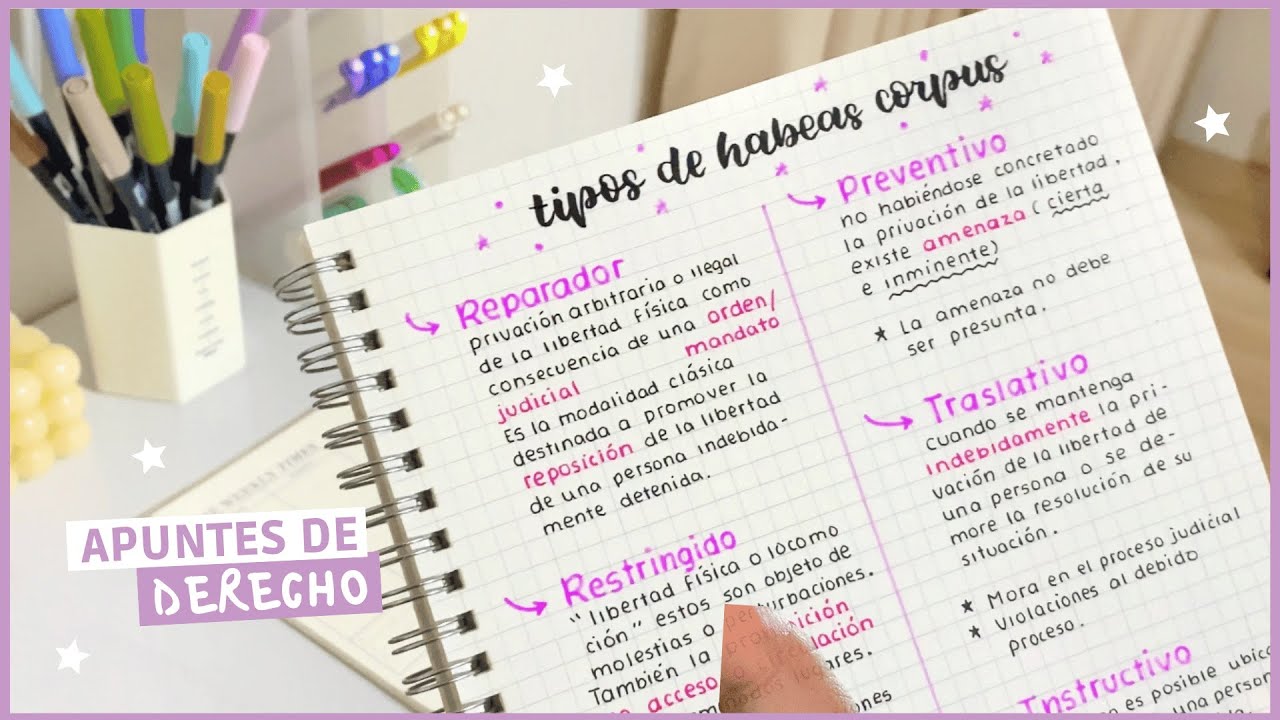 tipos de habeas corpus
Reparador
privación arbitraria o ilegal
de la libertad física como
consecuencia de una orden/
mandato
judicial
Es la modalidad clásica
destinada a promover la
reposición de la libertad
de una persona indebida-
mente detenida.
Restringido
"libertad física o locomo
ción" estos son objeto de
molestias o perturbaciones.
También la
acceso
lugares.
Preventivo
no habiéndose concretado
la privación de la libertad,
existe amenaza (cierta
e inminente)
★ La amenaza no debe
ser presunta.
Traslativo
cuando se mantenga
indebidamente la pri-
vación de la libertad de
una persona o se de-
more la resolución de su
situación.
★ Mora en el proceso judicial
★ Violaciones al debido
proceso.
Instructivo
es posible ubic
una person
APUNTES DE
DERECHO